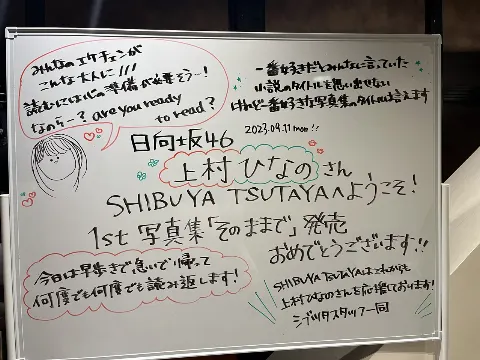 みんなのエケチェンが
こんな大人に!!!
読むには心の準備が必要そう…!
なのら…? are you ready
to read?
一番好きだとみんなに言っていた
小説のタイトルを思い出せない
けれど一番好きな写真集のタイトルは言えます
日向坂46
2023.09.11 mon!!
上村ひなのさん
SHIBUYA TSUTAYAへようこそ!
1st 写真集「そのままで」発売
おめでとうございます!!
今日は早歩きで急いで帰って
何度でも何度でも読み返します!
SHIBUYA TSUTAYAはこれからも
上村ひなのさんを応援しております!
シブツタスタッフ一同